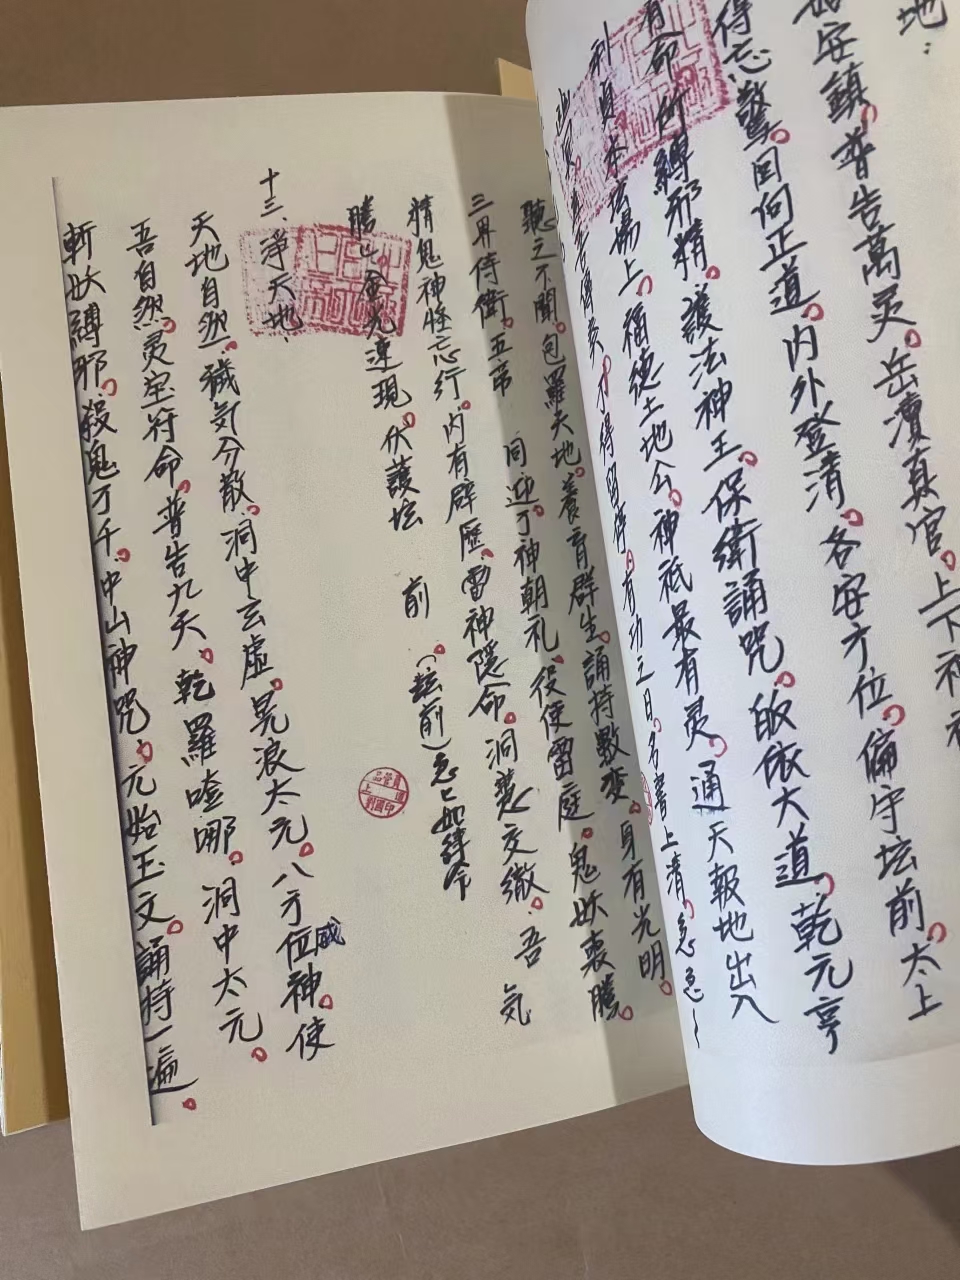 地：
安鎮。普告萬灵。岳瀆真官。上下神
得忘驚。囬向正道。内外登清。各安方位。偏守坛前。太上
有命。所縛邪精。護法神王。保衛誦咒。皈依大道。乾元亨
利貞
本坛場上。福德土地公。神祇最有灵。通天報地出入
不得留停。有功之日。名書上清。急急
聽之不聞。包羅天地。養育群生。誦持數变。身有光明。
三界侍衛。五帝 同迎了神朝礼。役使雷庭。鬼妖丧膽。
精鬼神怪忘行。内有霹靂。雷神隱命。洞慧交徹。吾 气
騰〻金光速現。伏護坛 前（坛前）急〻如律令
十三、淨天地
天地自然。穢気分散。洞中玄虚。晃浪太元。八方位威神。使
吾自然。灵宝符命。普告九天。乾羅噠哪。洞中太元。
斬妖縛邪。殺鬼万千。中山神咒。元始玉文。誦持一遍。